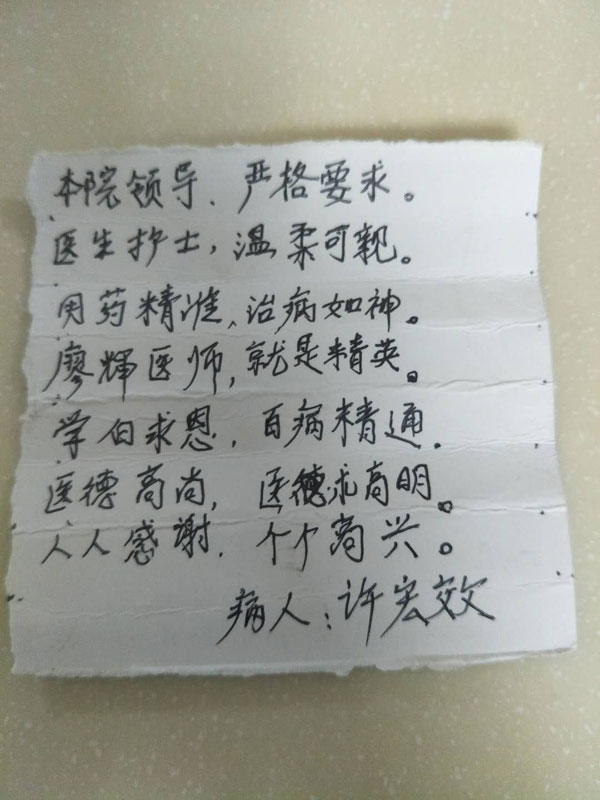 本院领导、严格要求。
医生护士，温柔可親。
用药精准、治病如神。
廖輝医师，就是精英。
学白求恩，百病精通.
医德高尚，医术高明。
人人感谢.个个高兴。
病人：许宏效